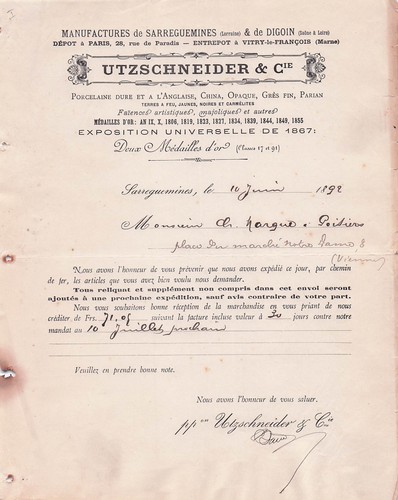 MANUFACTURES de SARREGUEMINES (Lorraine) & de DIGOIN (Saône & Loire)
DÉPÔT à PARIS, 28, rue de Paradis — ENTREPÔT à VITRY-le-FRANÇOIS (Marne)
UTZSCHNEIDER & CIE
PORCELAINE DURE ET A L'ANGLAISE, CHINA, OPAQUE, GRÈS FIN, PARIAN
TERRES A FEU, JAUNES, NOIRES ET CARMÉLITES
Faïences artistiques, majoliques et autres
MÉDAILLES D'OR: AN IX, X, 1806, 1819, 1823, 1827, 1834, 1839, 1844, 1849, 1855
EXPOSITION UNIVERSELLE DE 1867:
Deux Médailles d'or (Classes 17 et 91)
Sarreguemines, le 10 Juin 1892
Monsieur Ch. Marque à Poitiers
place du marché Notre Dame 8
(Vienne)
Nous avons l'honneur de vous prévenir que nous avons expédié ce jour, par chemin
de fer, les articles que vous avez bien voulu nous demander.
Tous reliquat et supplément non compris dans cet envoi seront
ajoutés à une prochaine expédition, sauf avis contraire de votre part.
Nous vous souhaitons bonne réception de la marchandise en vous priant de nous
créditer de Frs. 71,05 suivant la facture incluse valeur à 30 jours contre notre
mandat au 10 Juillet prochain
Veuillez en prendre bonne note.
Nous avons l'honneur de vous saluer.
pp on Utzschneider & Cie